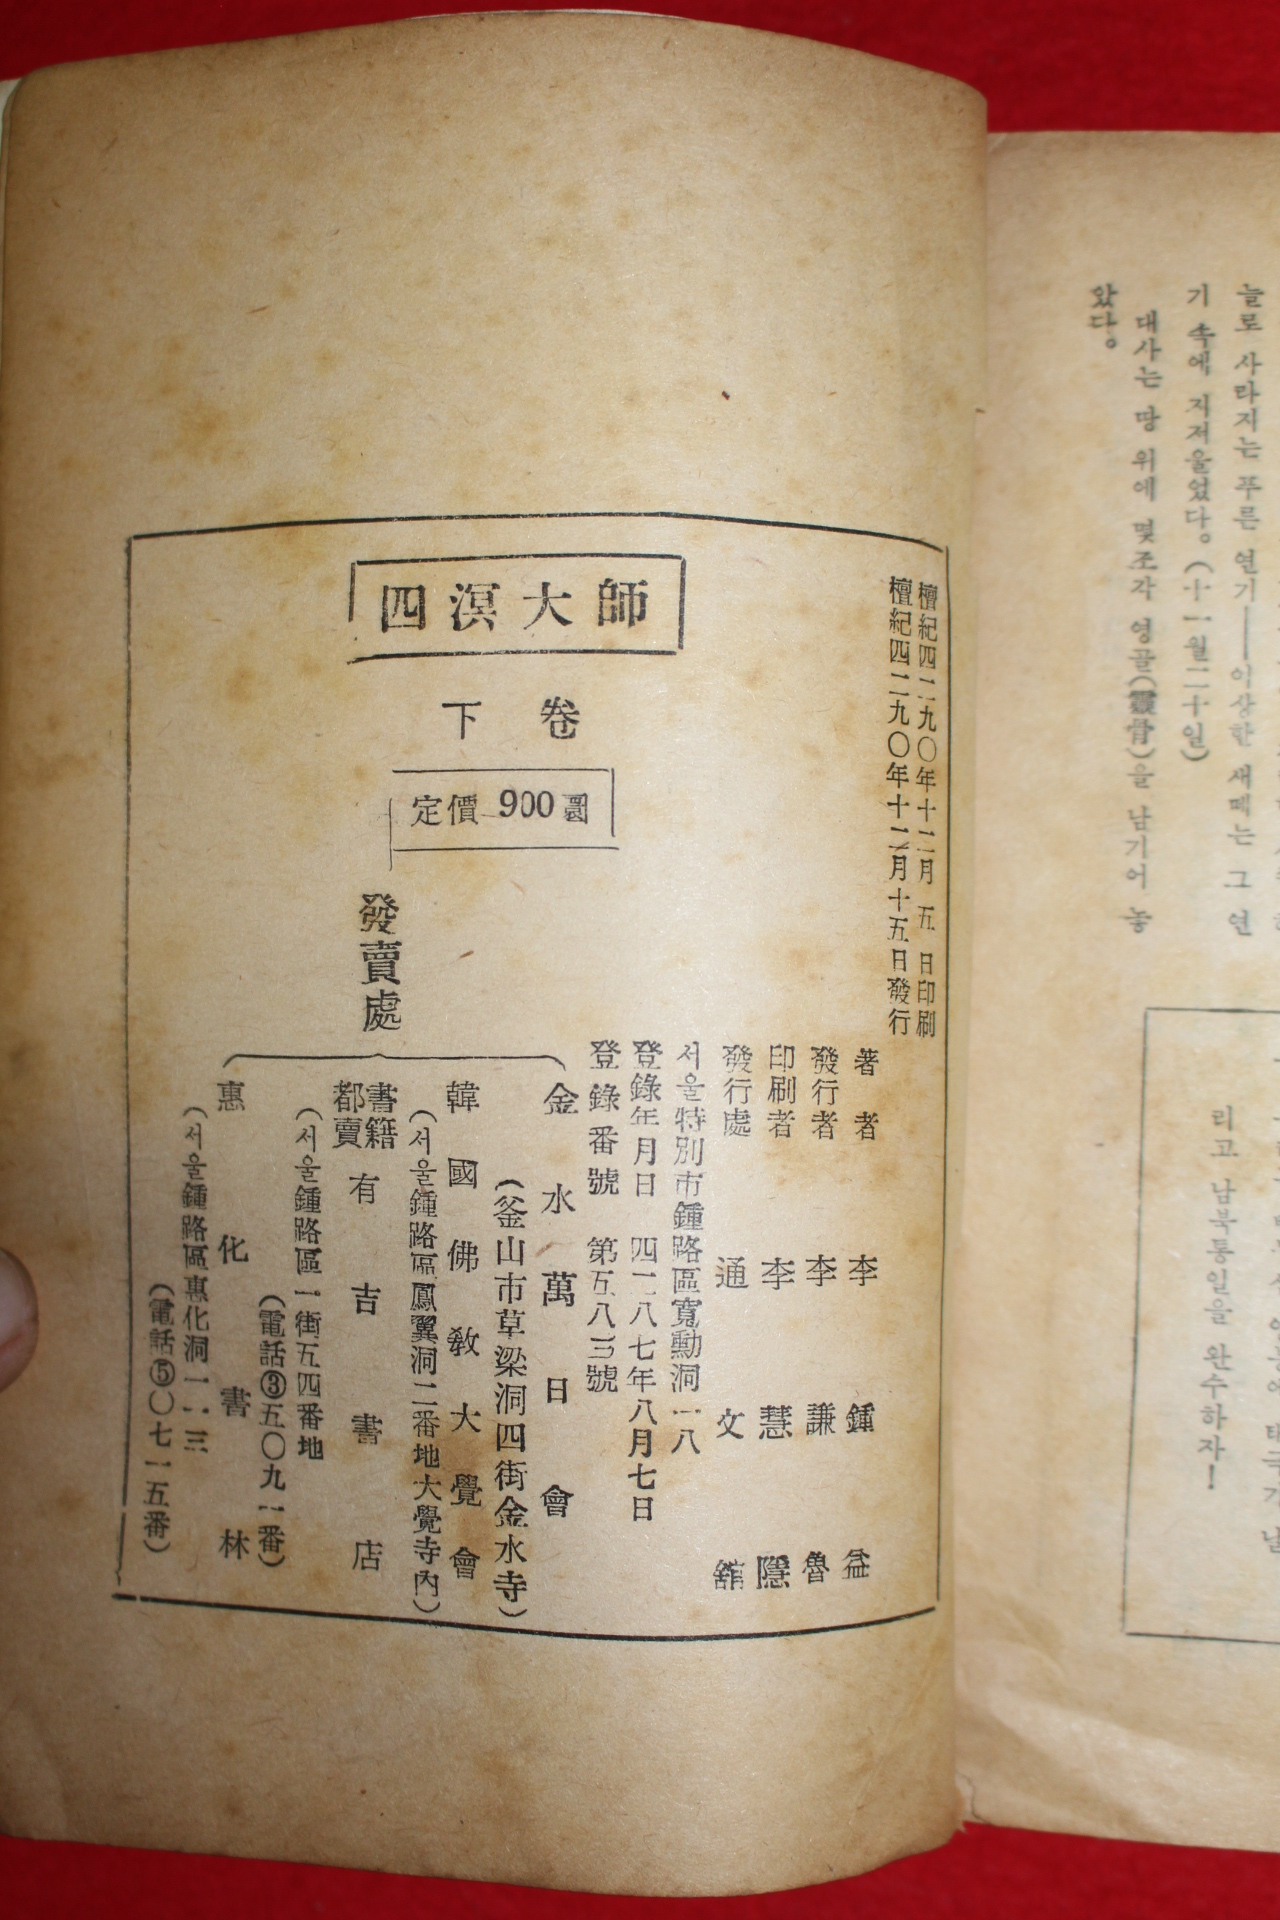 늘로 사라지는 푸른 연기――이상한 새떼는 그 연
기 속에 지저울었다。(十一월二十일)
대사는 땅 위에 몇조각 영골(靈骨)을 남기어 놓
았다。
리고 남북통일을 완수하자!
檀紀四二九〇年十二月 五 日印刷
檀紀四二九〇年十二月十五日發行
四溟大師
下卷
定價 900圜
著者 李鍾益
發行者 李謙魯
印刷者 李慧隱
發行處 通文館
서울特別市鍾路區寬勳洞一八
登錄年月日 四二八七年八月七日
登錄番號 第五八三號
發賣處
金水萬日會
(釜山市草梁洞四街金水寺)
韓國佛敎大覺會
(서울鍾路區鳳翼洞二番地大覺寺內)
書籍都賣 有吉書店
(서울鍾路區一街五四番地
(電話③五〇九一番)
惠化書林
(서울鍾路區惠化洞一一三
(電話⑤〇七一五番)